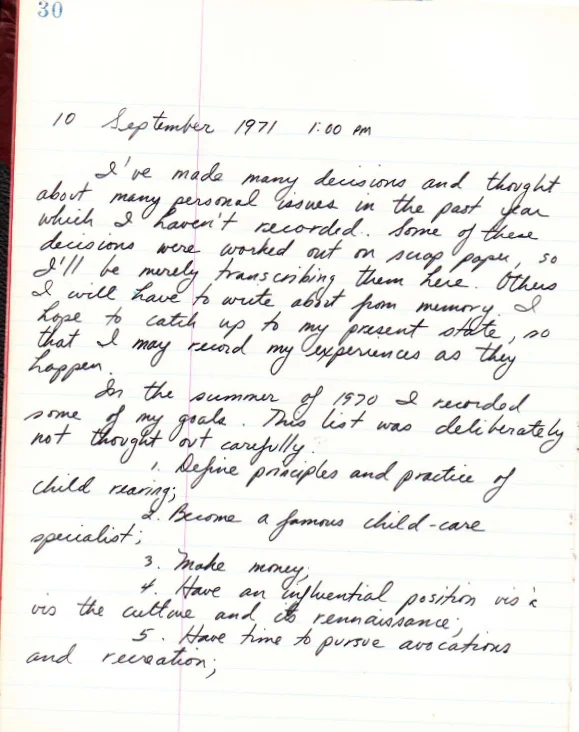 30
10 September 1971 1:00 PM
I've made many decisions and thought
about many personal issues in the past year
which I haven't recorded. Some of these
decisions were worked out on scrap paper, so
I'll be merely transcribing them here. Others
I will have to write about from memory. I
hope to catch up to my present state, so
that I may record my experiences as they
happen.
In the summer of 1970 I recorded
some of my goals. This list was deliberately
not thought out carefully.
1. Define principles and practice of
child rearing;
2. Become a famous child-care
specialist;
3. Make money;
4. Have an influential position vis à
vis the culture and its rennaissance;
5. Have time to pursue avocations
and recreation;